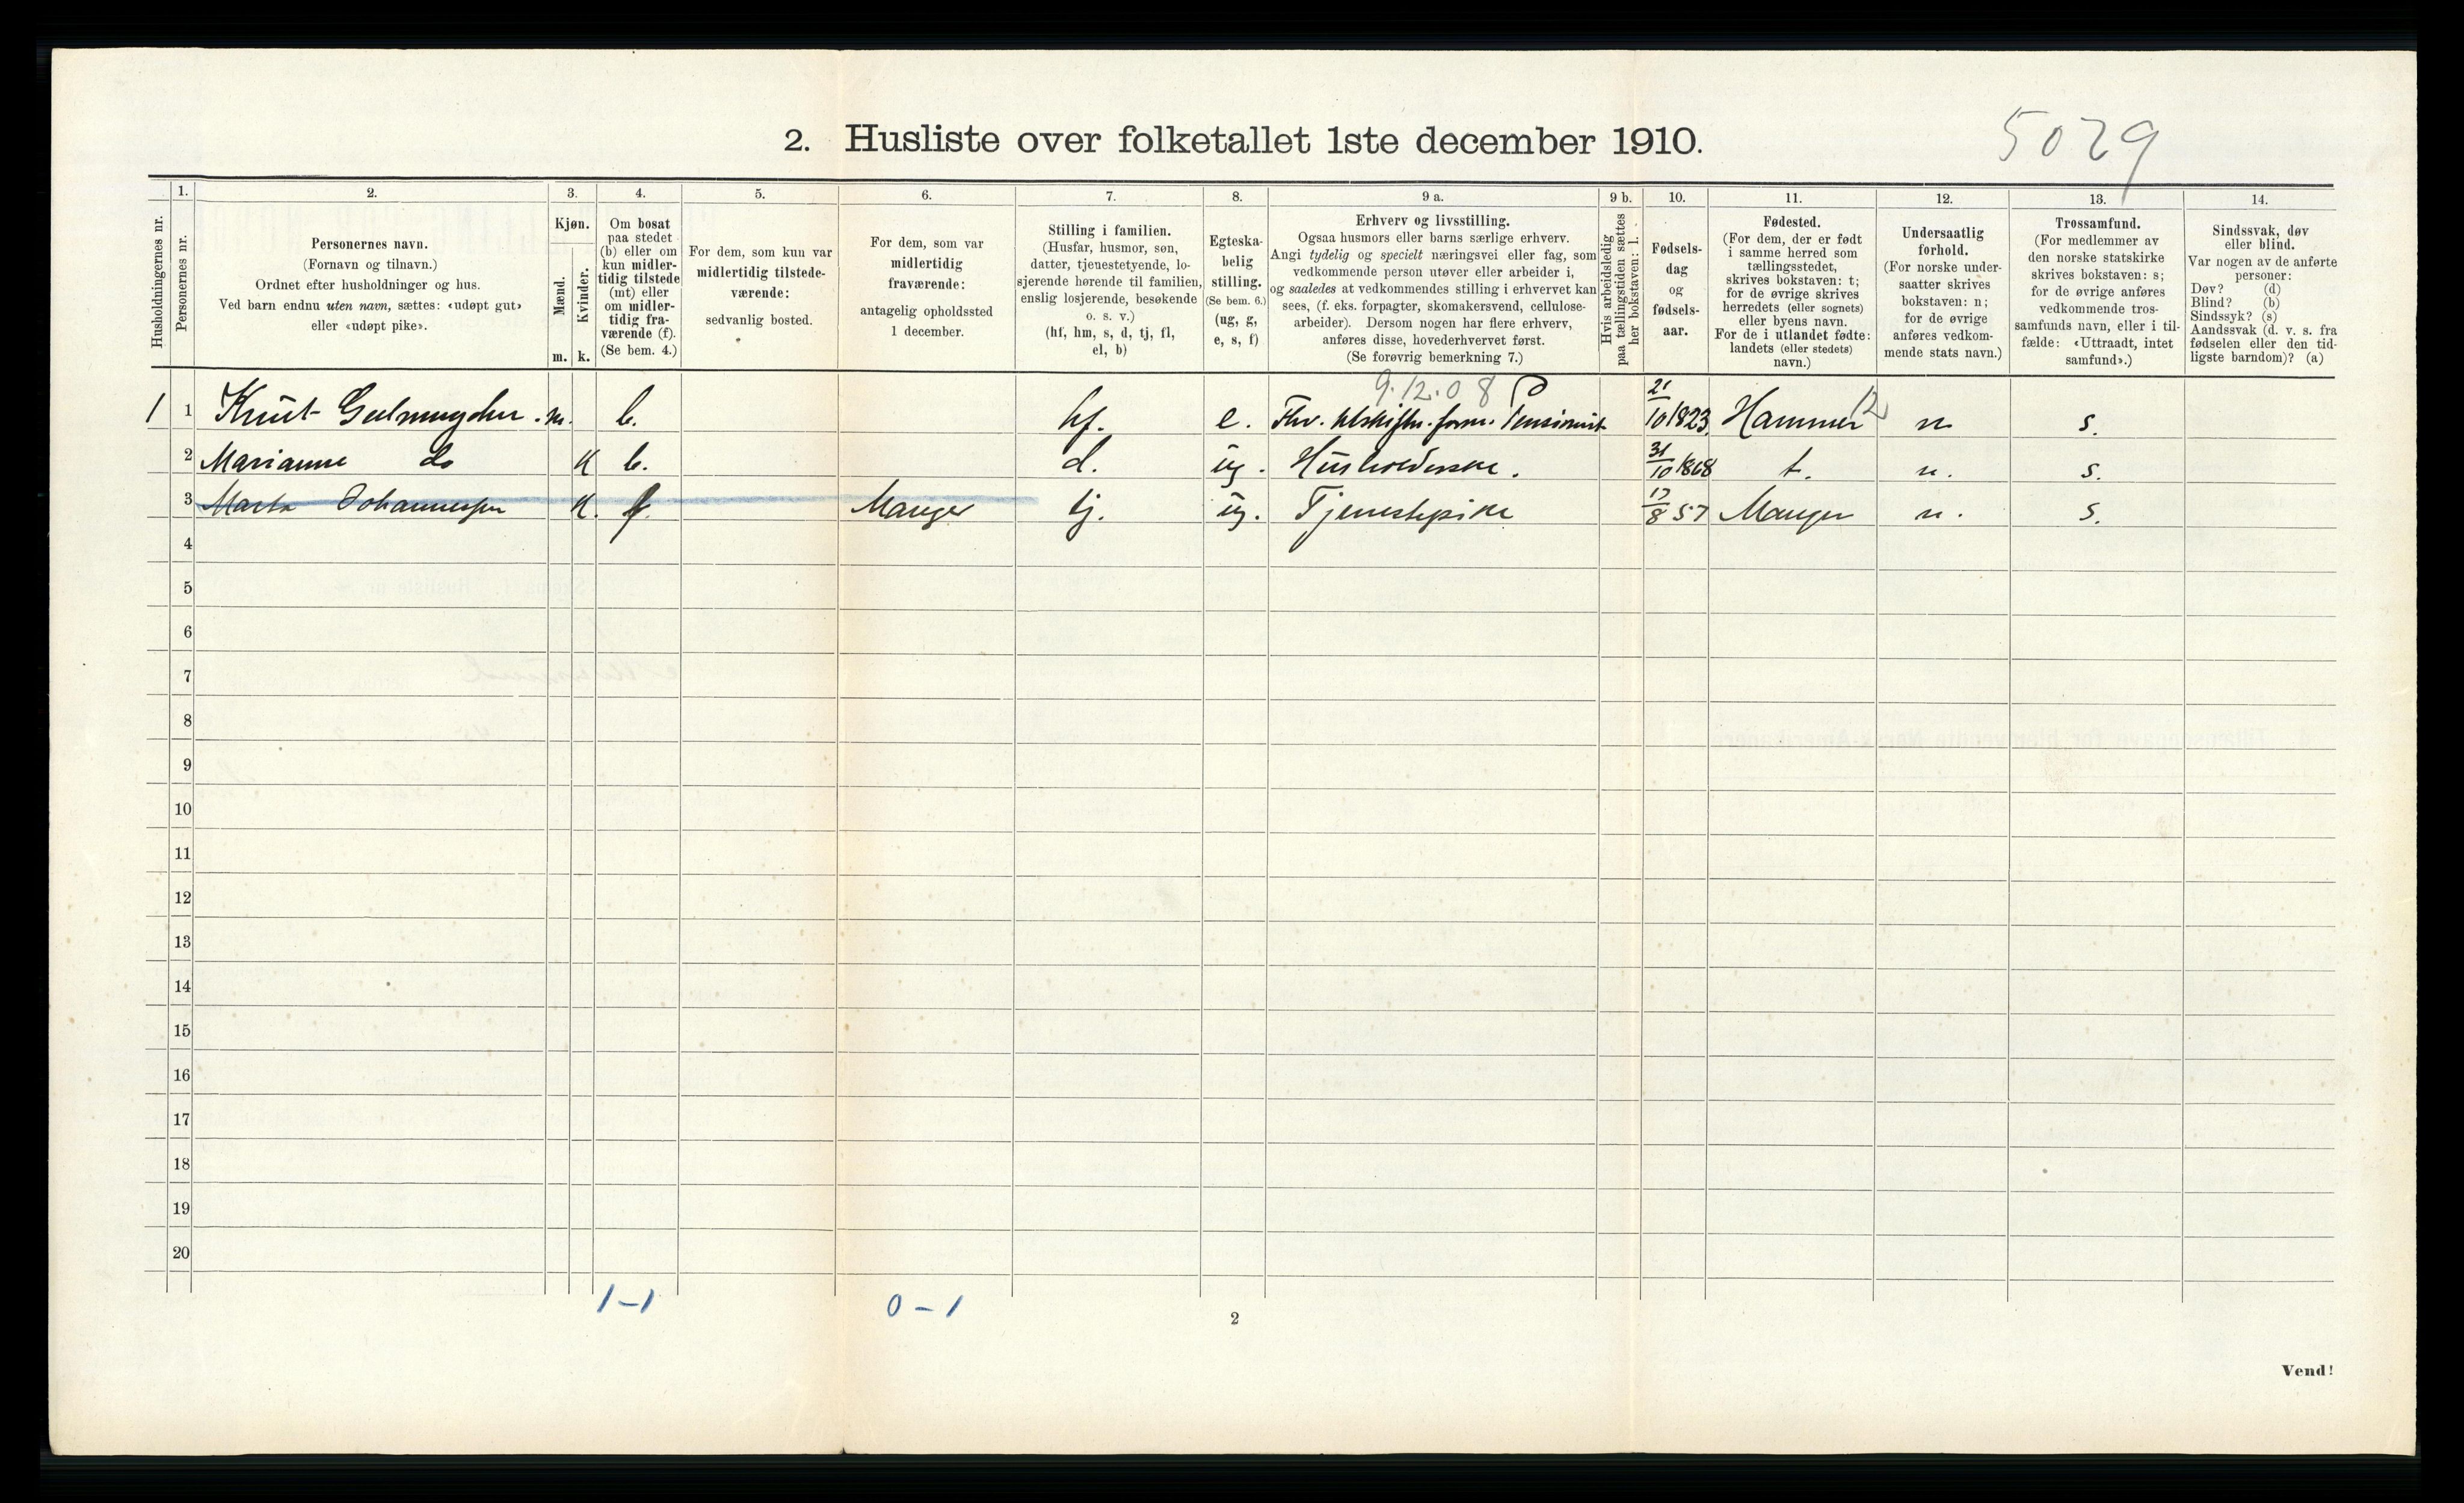 5029
2. Husliste over folketallet 1ste december 1910.
Husholdningernes nr.
1.
Personernes nr.
2.
Personernes navn.
(Fornavn og tilnavn.)
Ordnet efter husholdninger og hus.
Ved barn endnu uten navn, sættes: «udøpt gut»
eller «udøpt pike».
3.
Kjøn.
Mænd.
Kvinder.
m. k.
4.
Om bosat
paa stedet
(b) eller om
kun midler-
tidig tilstede
(mt) eller
om midler-
tidig fra-
værende (f).
(Se bem. 4.)
5.
For dem, som kun var
midlertidig tilstede-
værende:
sedvanlig bosted.
6.
For dem, som var
midlertidig
fraværende:
antagelig opholdssted
1 december.
7.
Stilling i familien.
(Husfar, husmor, søn,
datter, tjenestetyende, lo-
sjerende hørende til familien,
enslig losjerende, besøkende
o. s. v.)
(hf, hm, s, d, tj, fl,
el, b)
8.
Egteska-
belig
stilling.
(Se bem. 6.)
(ug, g,
e, s, f)
9 a.
Erhverv og livsstilling.
Ogsaa husmors eller barns særlige erhverv.
Angi tydelig og specielt næringsvei eller fag, som
vedkommende person utøver eller arbeider i,
og saaledes at vedkommendes stilling i erhvervet kan
sees, (f. eks. forpagter, skomakersvend, cellulose-
arbeider). Dersom nogen har flere erhverv,
anføres disse, hovederhvervet først.
(Se forøvrig bemerkning 7.)
9 b.
Hvis arbeidsledig
paa tællingstiden sættes
her bokstaven: l.
10.
Fødsels-
dag
og
fødsels-
aar.
11.
Fødested.
(For dem, der er født
i samme herred som
tællingsstedet,
skrives bokstaven: t;
for de øvrige skrives
herredets (eller sognets)
eller byens navn.
For de i utlandet fødte:
landets (eller stedets)
navn.)
12.
Undersaatlig
forhold.
(For norske under-
saatter skrives
bokstaven: n;
for de øvrige
anføres vedkom-
mende stats navn.)
13.
Trossamfund.
(For medlemmer av
den norske statskirke
skrives bokstaven: s;
for de øvrige anføres
vedkommende tros-
samfunds navn, eller i til-
fælde: «Uttraadt, intet
samfund».)
14.
Sindssvak, døv
eller blind.
Var nogen av de anførte
personer:
Døv? (d)
Blind? (b)
Sindssyk? (s)
Aandssvak (d. v. s. fra
fødselen eller den tid-
ligste barndom)? (a)
9.12.08
1 1 Knut m. b. hf. e. Fhv. Pensionist 21/10 1823 Hammer 12 n s.
2 Marianne do K b. d. ug. Husholderske. 31/10 1868 t. n. s.
3 Marta Johannessen K. f Manger tj. ug. Tjenestepike 17/8 57 Manger n. s.
4
5
6
7
8
9
10
11
12
13
14
15
16
17
18
19
20
1-1 0-1
2
Vend!